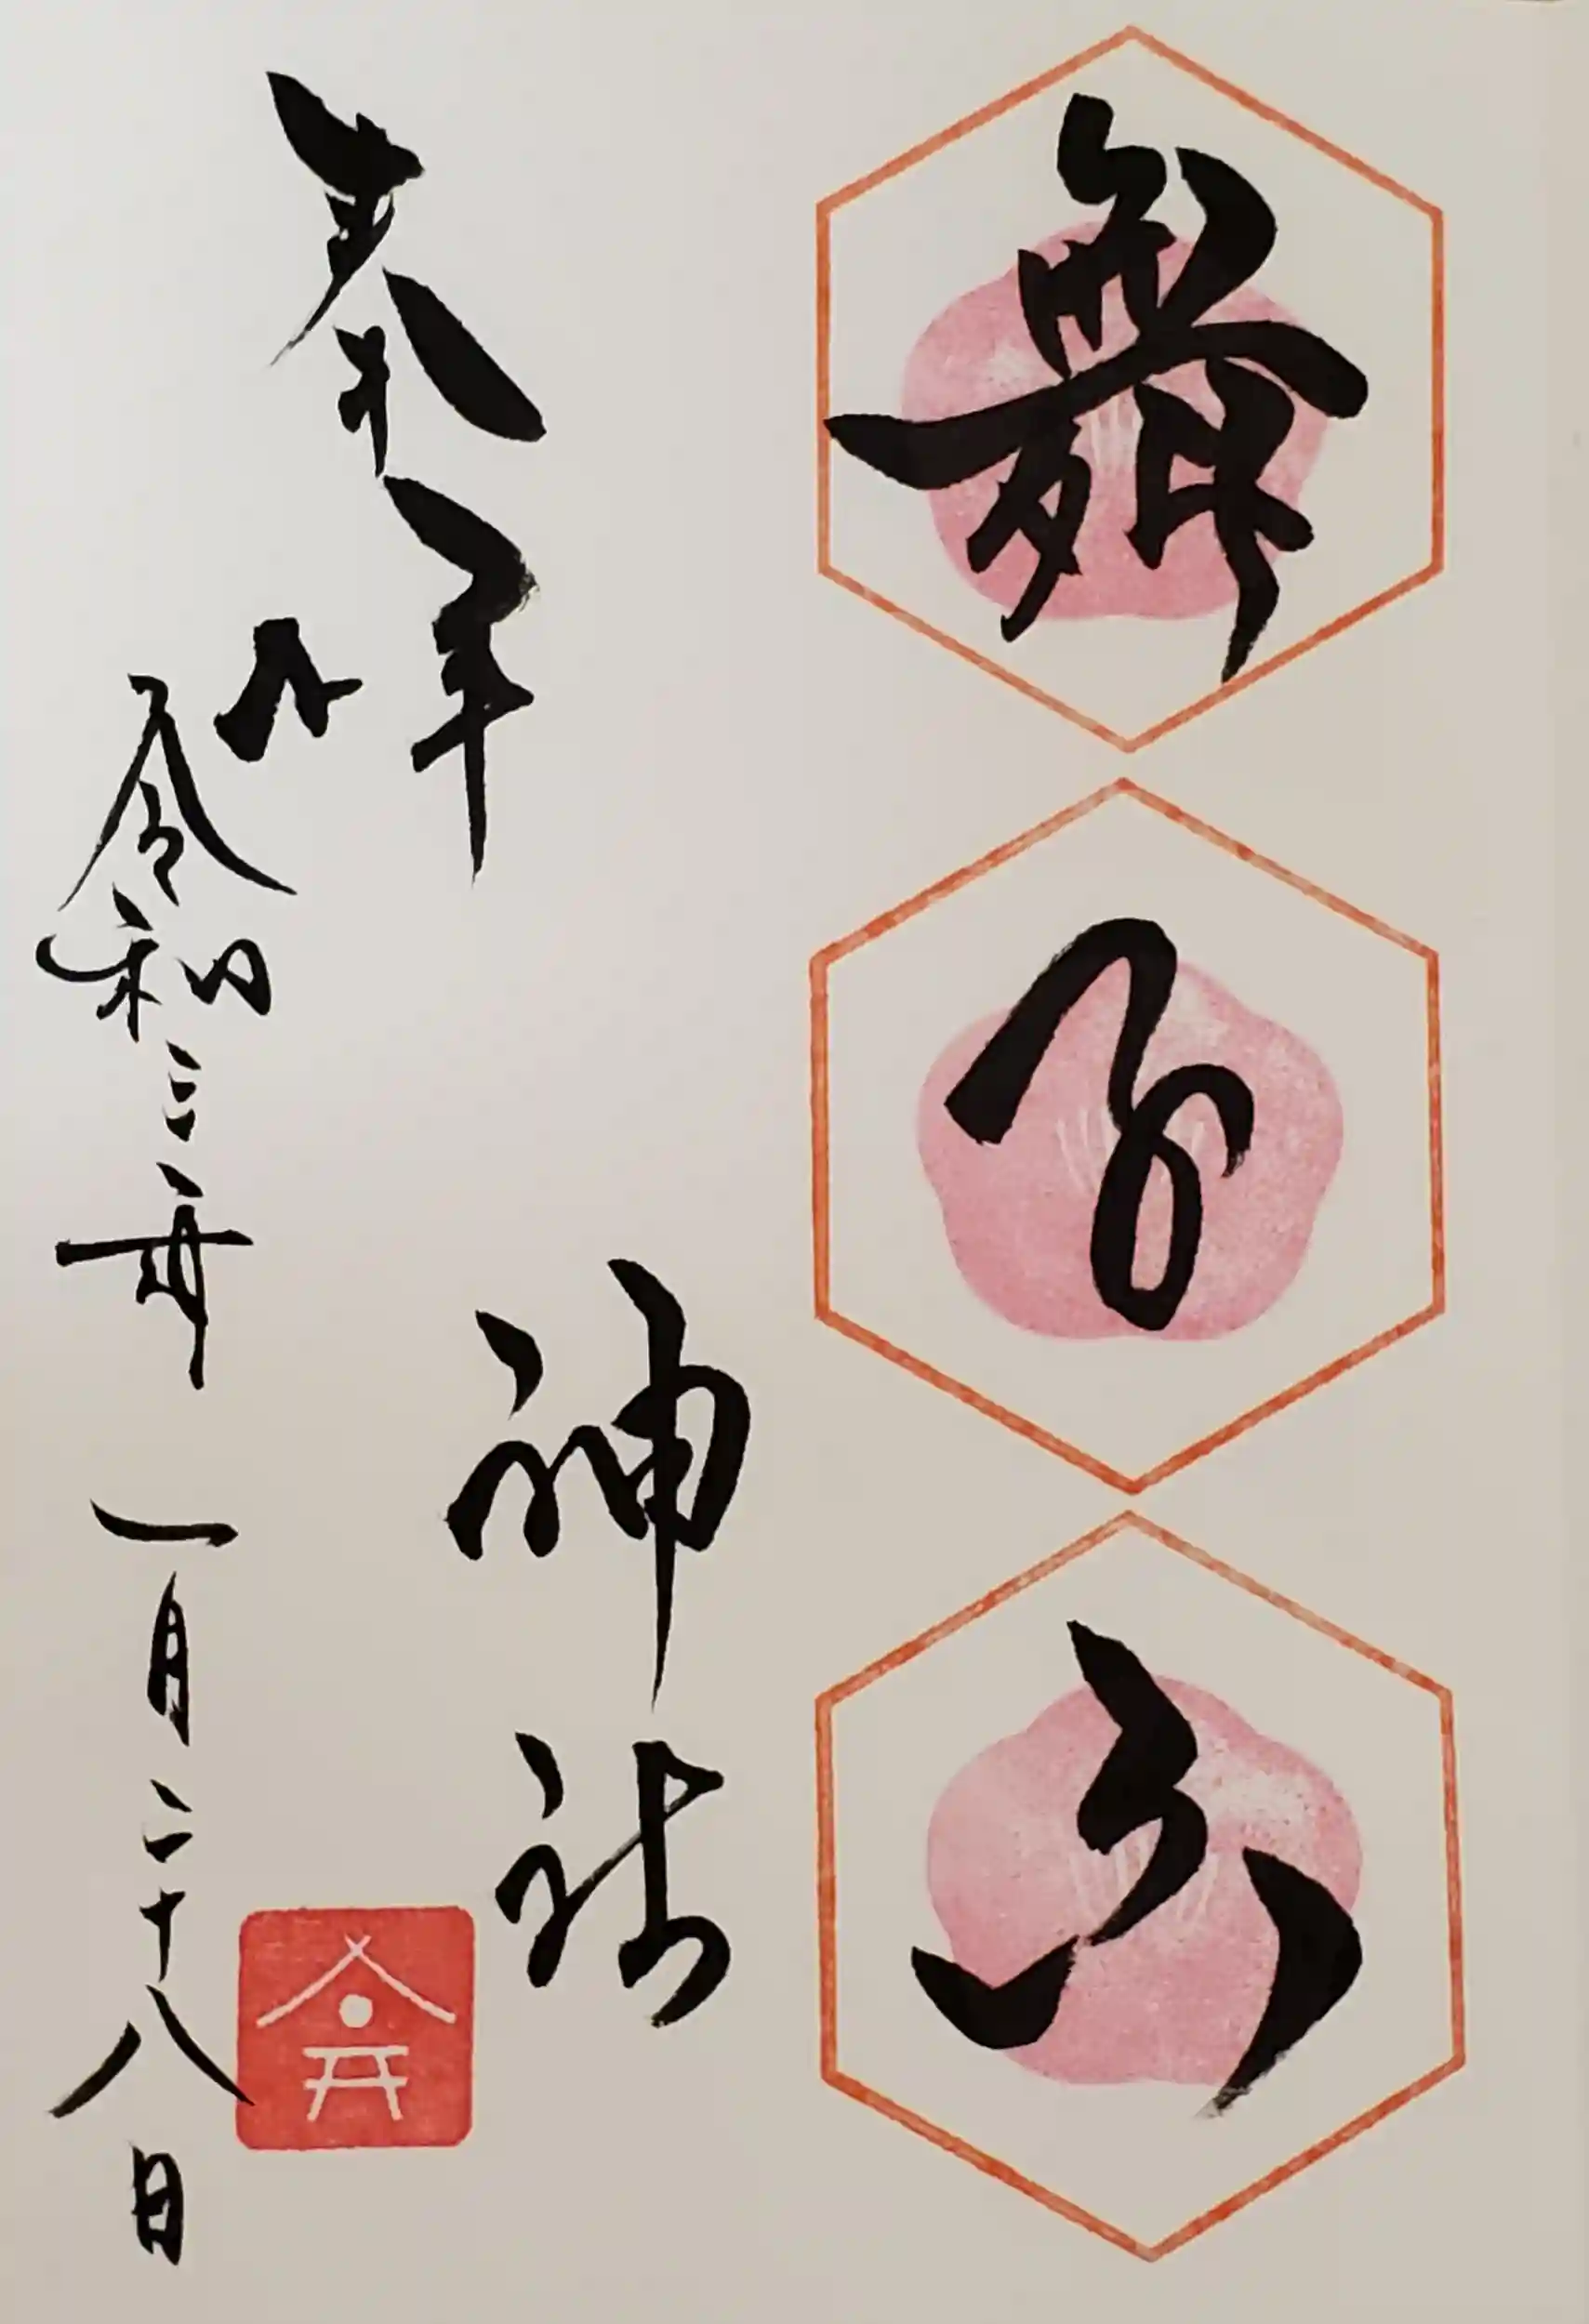 舞子六
神社
奉拝
令和三年 一月二十八日